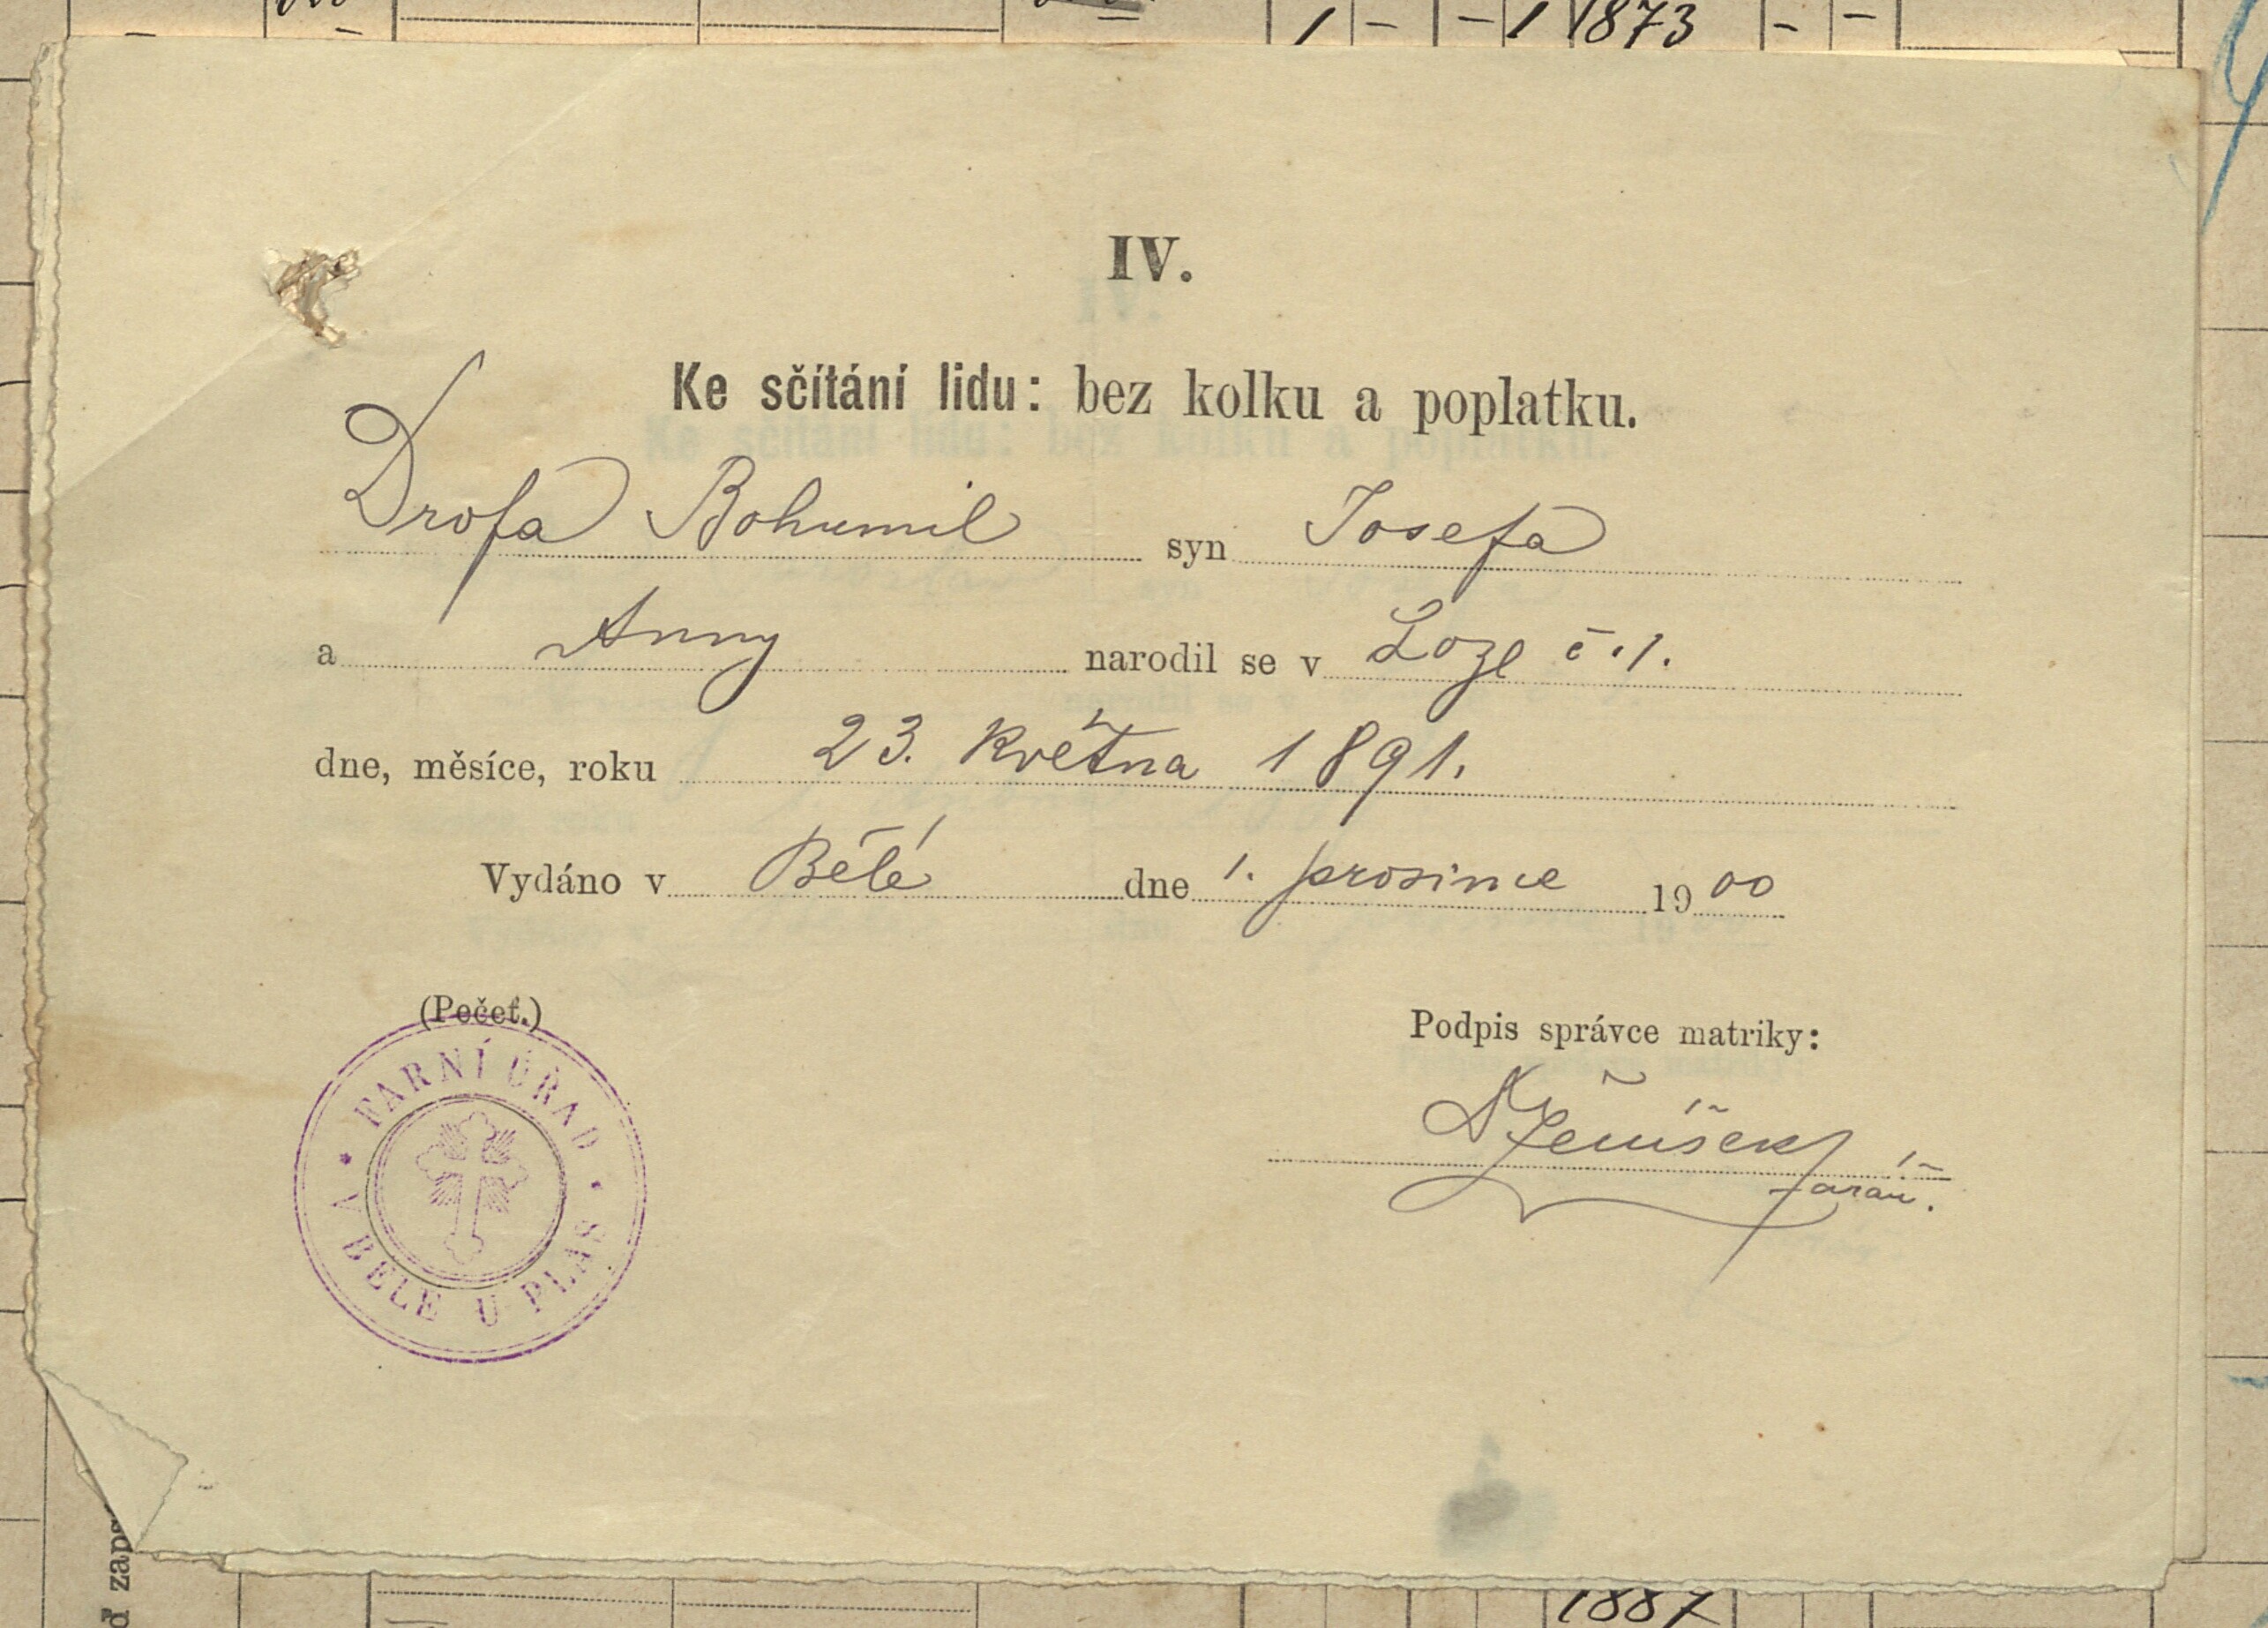 1 – – 1 1873 – –
IV.
Ke sčítání lidu: bez kolku a poplatku.
Drofa Bohumil syn Josefa
a Anny narodil se v Loze č. 1.
dne, měsíce, roku 23. května 1891.
Vydáno v Bělé dne 1. prosince 1900
(Pečeť.)
FARNÍ ÚŘAD
V BĚLÉ U PLAS
Podpis správce matriky:
farář.
1887